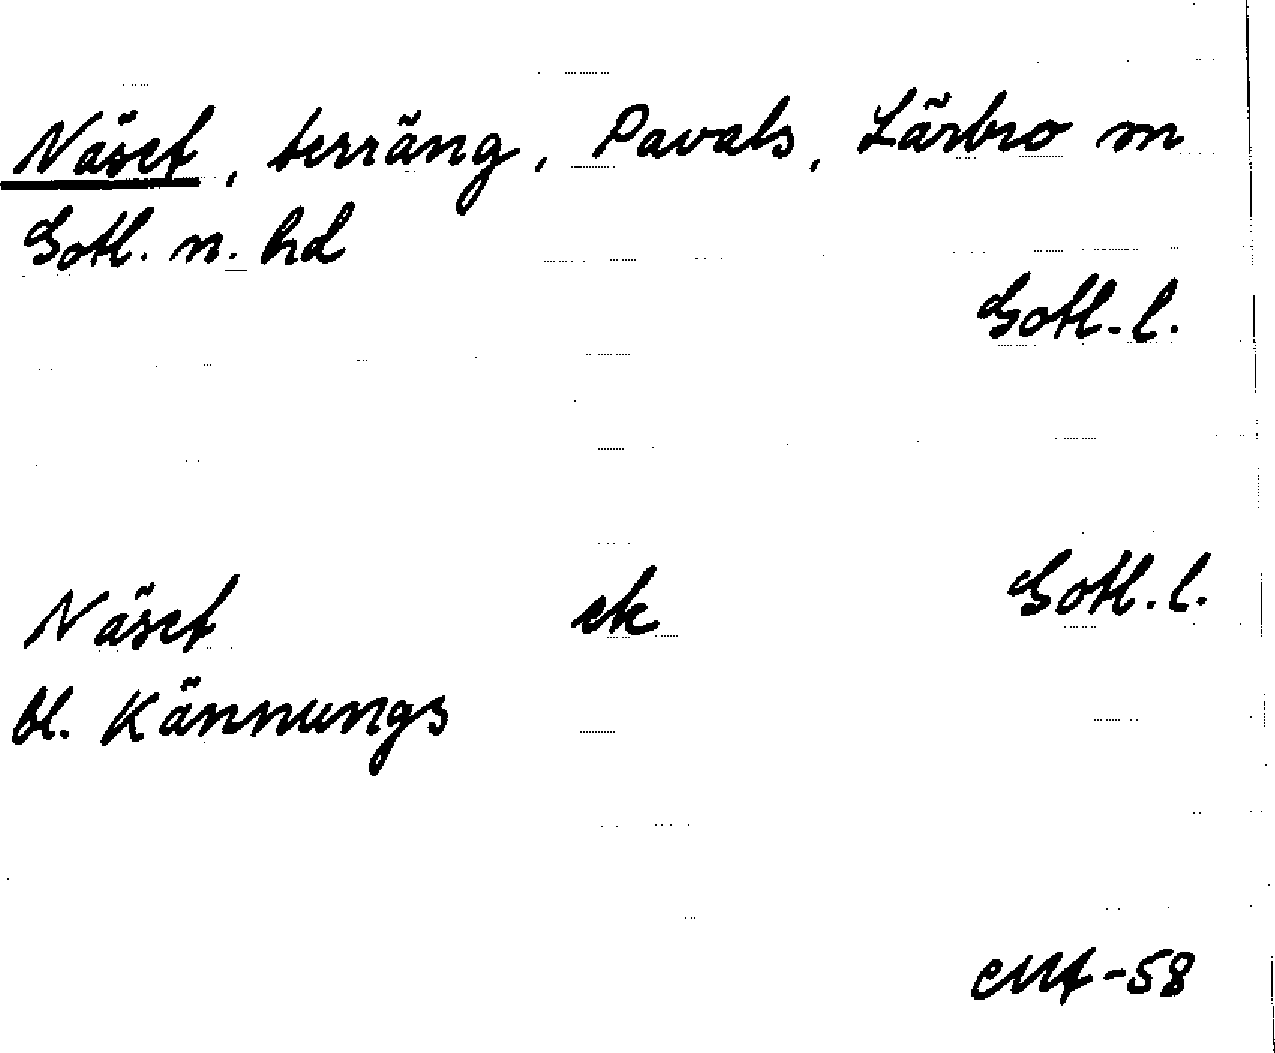 Näset, terräng, Pavals, Lärbro sn
Gotl. n. hd
Gotl. l.
Näset ek Gotl. l.
bl. Kännungs